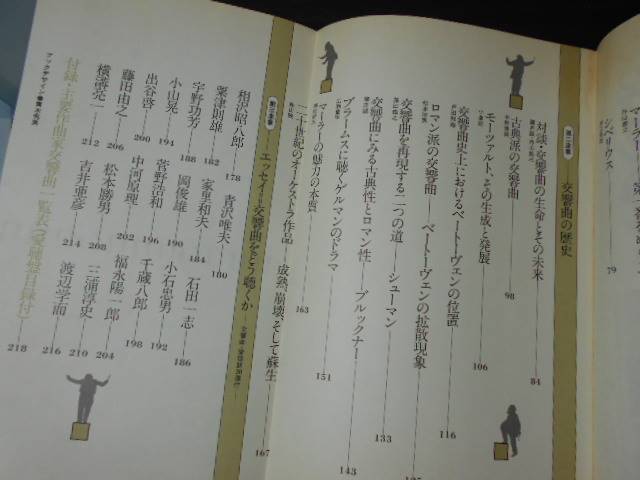 シベリウス
79
第二楽章
交響曲の歴史
対談・交響曲の生命とその未来
84
古典派の交響曲
98
モーツァルト、その生成と発展
106
交響曲史上におけるベートーヴェンの位置
116
ロマン派の交響曲——ベートーヴェンの拡散現象
交響曲を再現する二つの道——シューマン
133
交響曲にみる古典性とロマン性——ブルックナー
143
ブラームスに聴くゲルマンのドラマ
151
マーラーの魅力の本質
二十世紀のオーケストラ作品——成熟、崩壊、そして蘇生
163
第三楽章
エッセイ=交響曲をどう聴くか
167
相沢昭八郎 178
青沢唯夫 180
石田一志
粟津則雄 182
家里和夫 184
宇野功芳 188
岡俊雄 190
小石忠男 186
小山晃 194
菅野浩和 196
千蔵八郎 192
出谷啓 200
中河原理 202
福永陽一郎 198
藤田由之 206
松本勝男 208
三浦淳史 204
横溝亮一 212
吉井亜彦 214
渡辺学而 210
付録・主要作曲家交響曲一覧表(愛聴盤目録付) 218